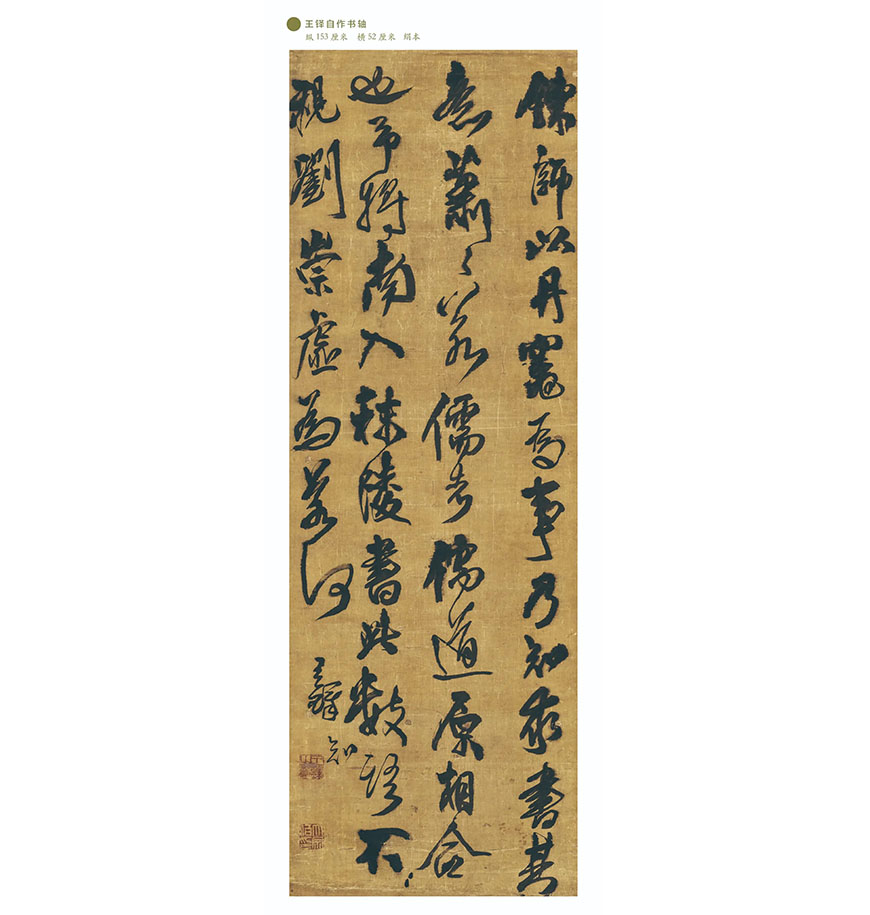 王铎自作书轴
纵153厘米 横52厘米 绢本
錬師以丹竈為事乃知求書其
意蕭〻若儒者儒道原相合
也予將南入秣陵書此数語不
視劉崇虛為若何
王鐸